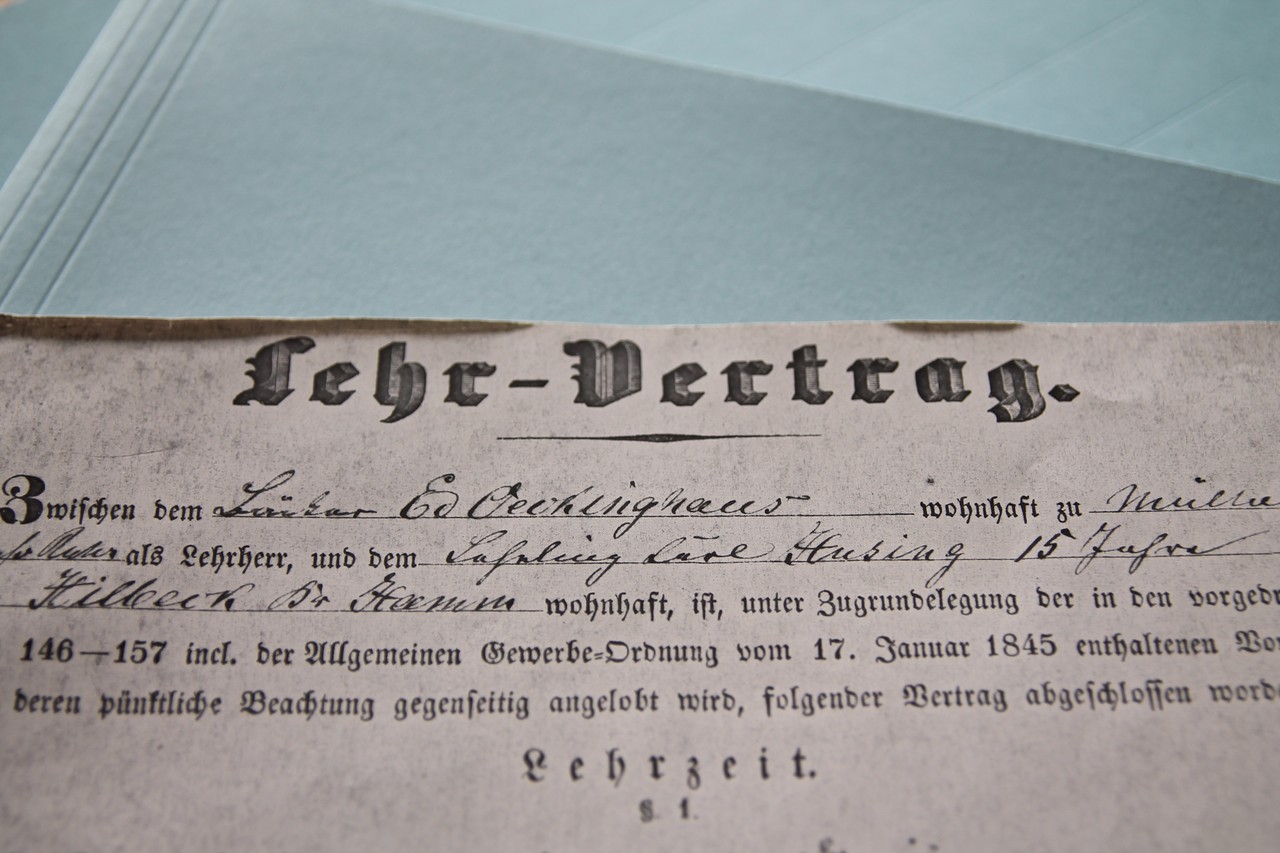 Lehr-Vertrag.
Zwischen dem Bäcker Ed Oeckinghaus wohnhaft zu Mülhe
Ruhr als Lehrherr, und dem Lehrling Carl Husing 15 Jahre
Hilbeck Kr Hamm wohnhaft, ist, unter Zugrundelegung der in den vorgedr
146—157 incl. der Allgemeinen Gewerbe-Ordnung vom 17. Januar 1845 enthaltenen Vor
deren pünktliche Beachtung gegenseitig angelobt wird, folgender Vertrag abgeschlossen word
Lehrzeit.
§. 1.